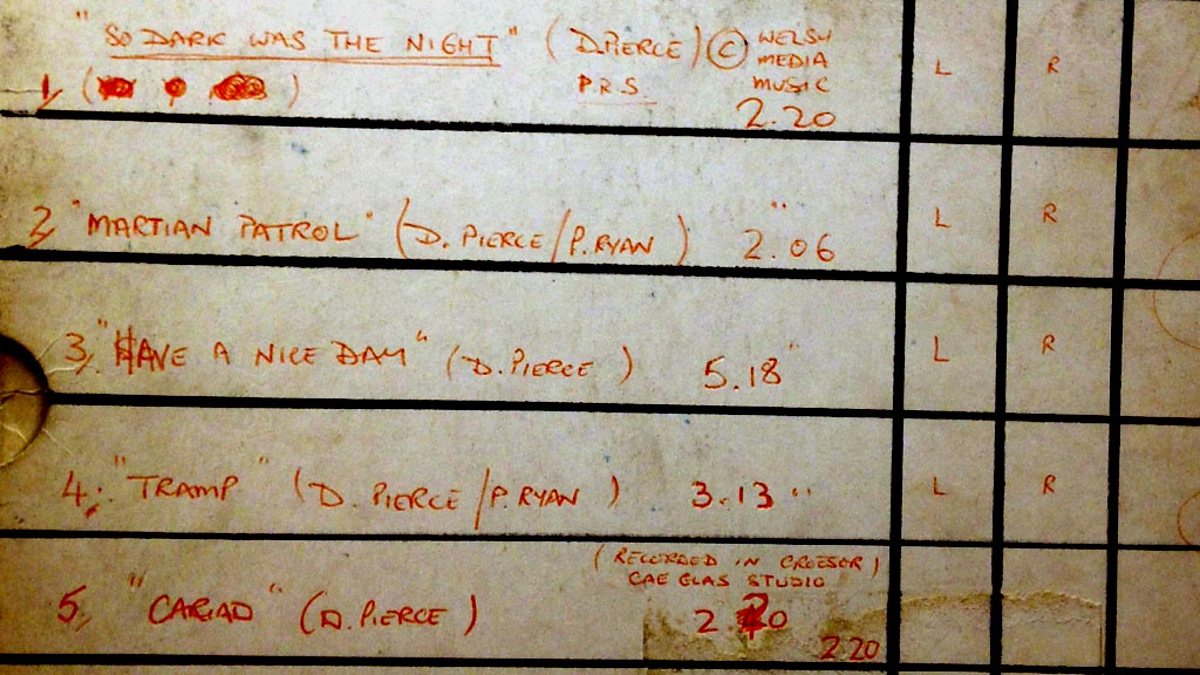 "SO DARK WAS THE NIGHT" (D.PIERCE) © WELSH
MEDIA
P.R.S. MUSIC
1, ( )
2.20
L R
2, "MARTIAN PATROL" (D. PIERCE/P.RYAN) 2.06" L R
3, "HAVE A NICE DAY" (D.PIERCE) 5.18" L R
4, "TRAMP" (D. PIERCE/P.RYAN) 3.13" L R
(RECORDED IN CROESOR)
CAE GLAS STUDIO
5, "CARIAD" (D.PIERCE) 2.20
2 20